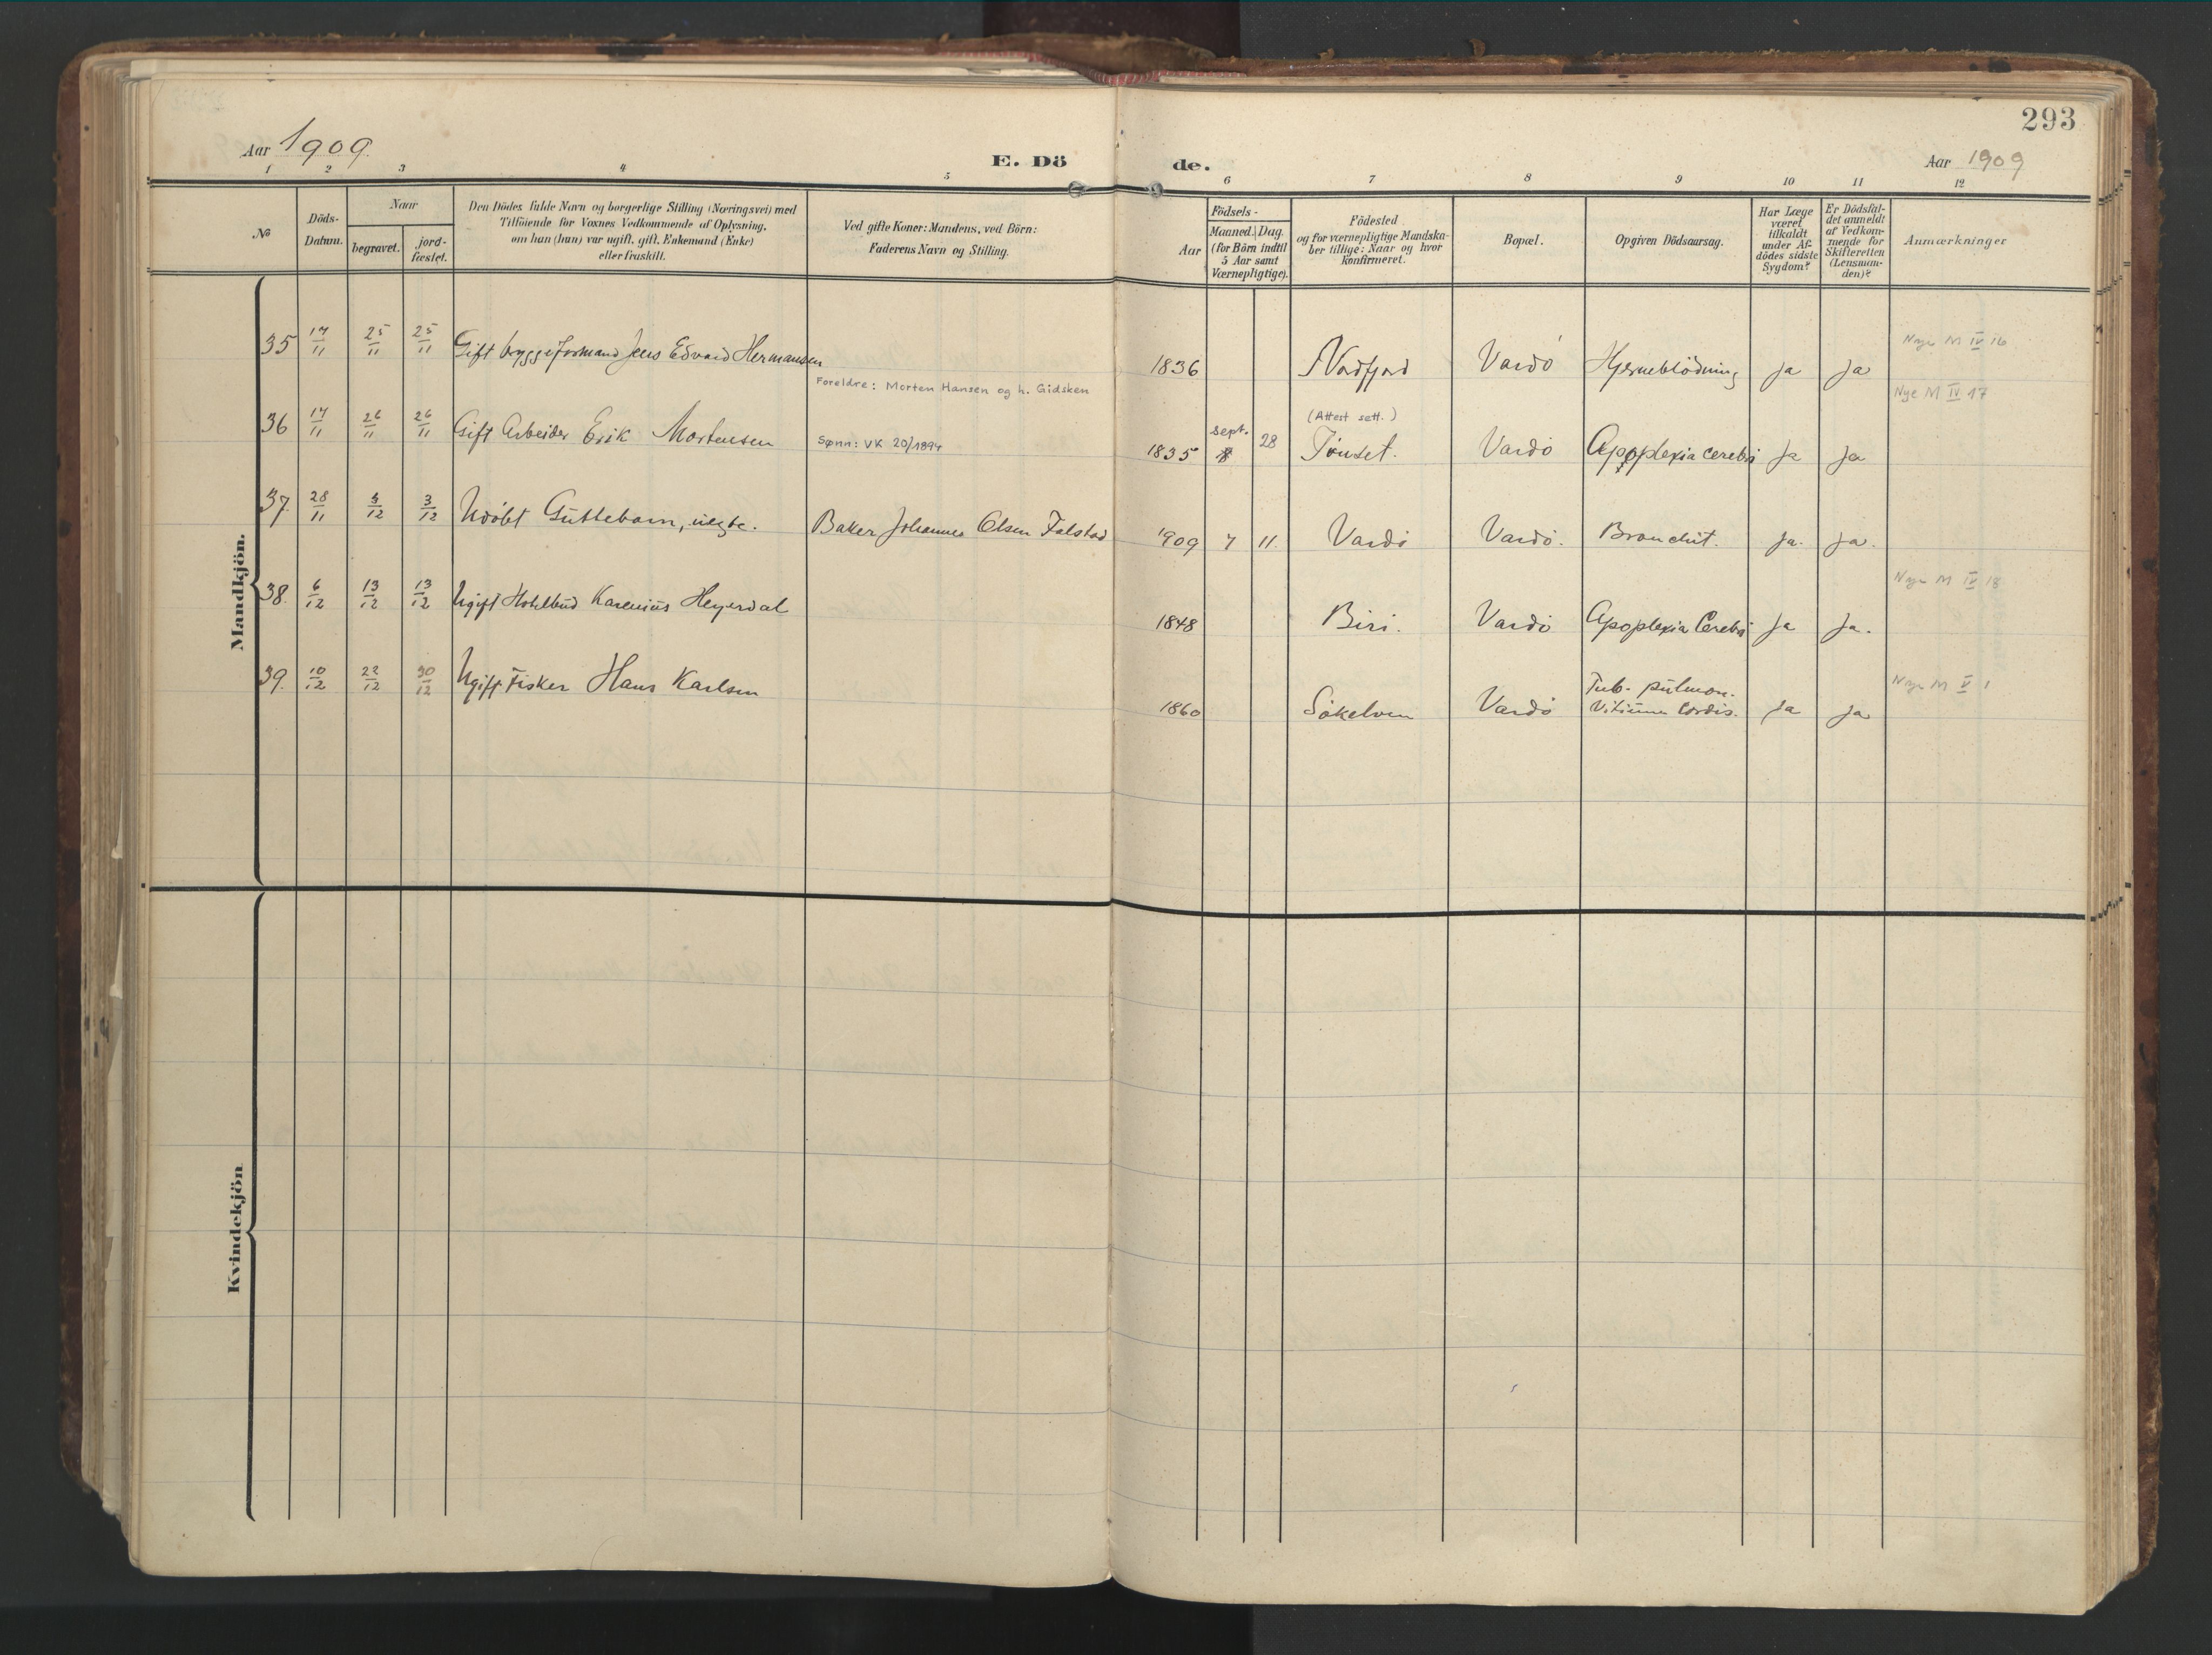 293
Aar 1909
E. Dö de.
Aar 1909
1 2 3 4 5 6 7 8 9 10 11 12
No
Döds-
Datum.
Naar
begravet.
jord-
fæstet.
Den Dödes fulde Navn og borgerlige Stilling (Næringsvei) med
Tilföiende for Voxnes Vedkommende af Oplysning,
om han (hun) var ugift, gift, Enkemand (Enke)
eller fraskilt.
Ved gifte Koner: Mandens, ved Börn:
Faderens Navn og Stilling.
Födsels-
Aar
Maaned. Dag.
(for Börn indtil
5 Aar samt
Værnepligtige).
Födested
og for værnepligtige Mandska-
ber tillige: Naar og hvor
konfirmeret.
Bopæl.
Opgiven Dödsaarsag.
Har Læge
været
tilkaldt
under Af-
dödes sidste
Sygdom?
Er Dödsfal-
det anmeldt
af Vedkom-
mende for
Skifteretten
(Lensman-
den)?
Anmærkninger
Mandkjön.
35 17/11 25/11 25/11 Gift bryggeformand Jens Edvard Hermansen 1836 Nordfjord Vardö Hjerneblödning ja ja Nye M IV 16
Foreldre: Morten Hansen og h. Gidsken
Nye M IV 17
(Attest sett.)
36 17/11 26/11 26/11 Gift Arbeider Erik Mortensen Sønn: VK 20/1894 1835 sept. 28 Tönset. Vardö Apoplexia cerebri ja ja
37. 28/11 3/12 3/12 Udöbt Guttebarn, uegte. Baker Johannes Olsen Folstad 1909 7 11. Vardö Vardö. Bronchit. ja. ja.
Nye M IV 18
38. 6/12 13/12 13/12 Ugift Hotelbud Karenius Heyerdal 1848 Biri. Vardö Apoplexia Cerebri ja ja.
Nye M V 1
39. 10/12 22/12 30/12 Ugift Fisker Hans Karlsen 1860 Sökelven Vardö Tub. pulmon.
Vitium Cordis. ja ja
Kvindekjön